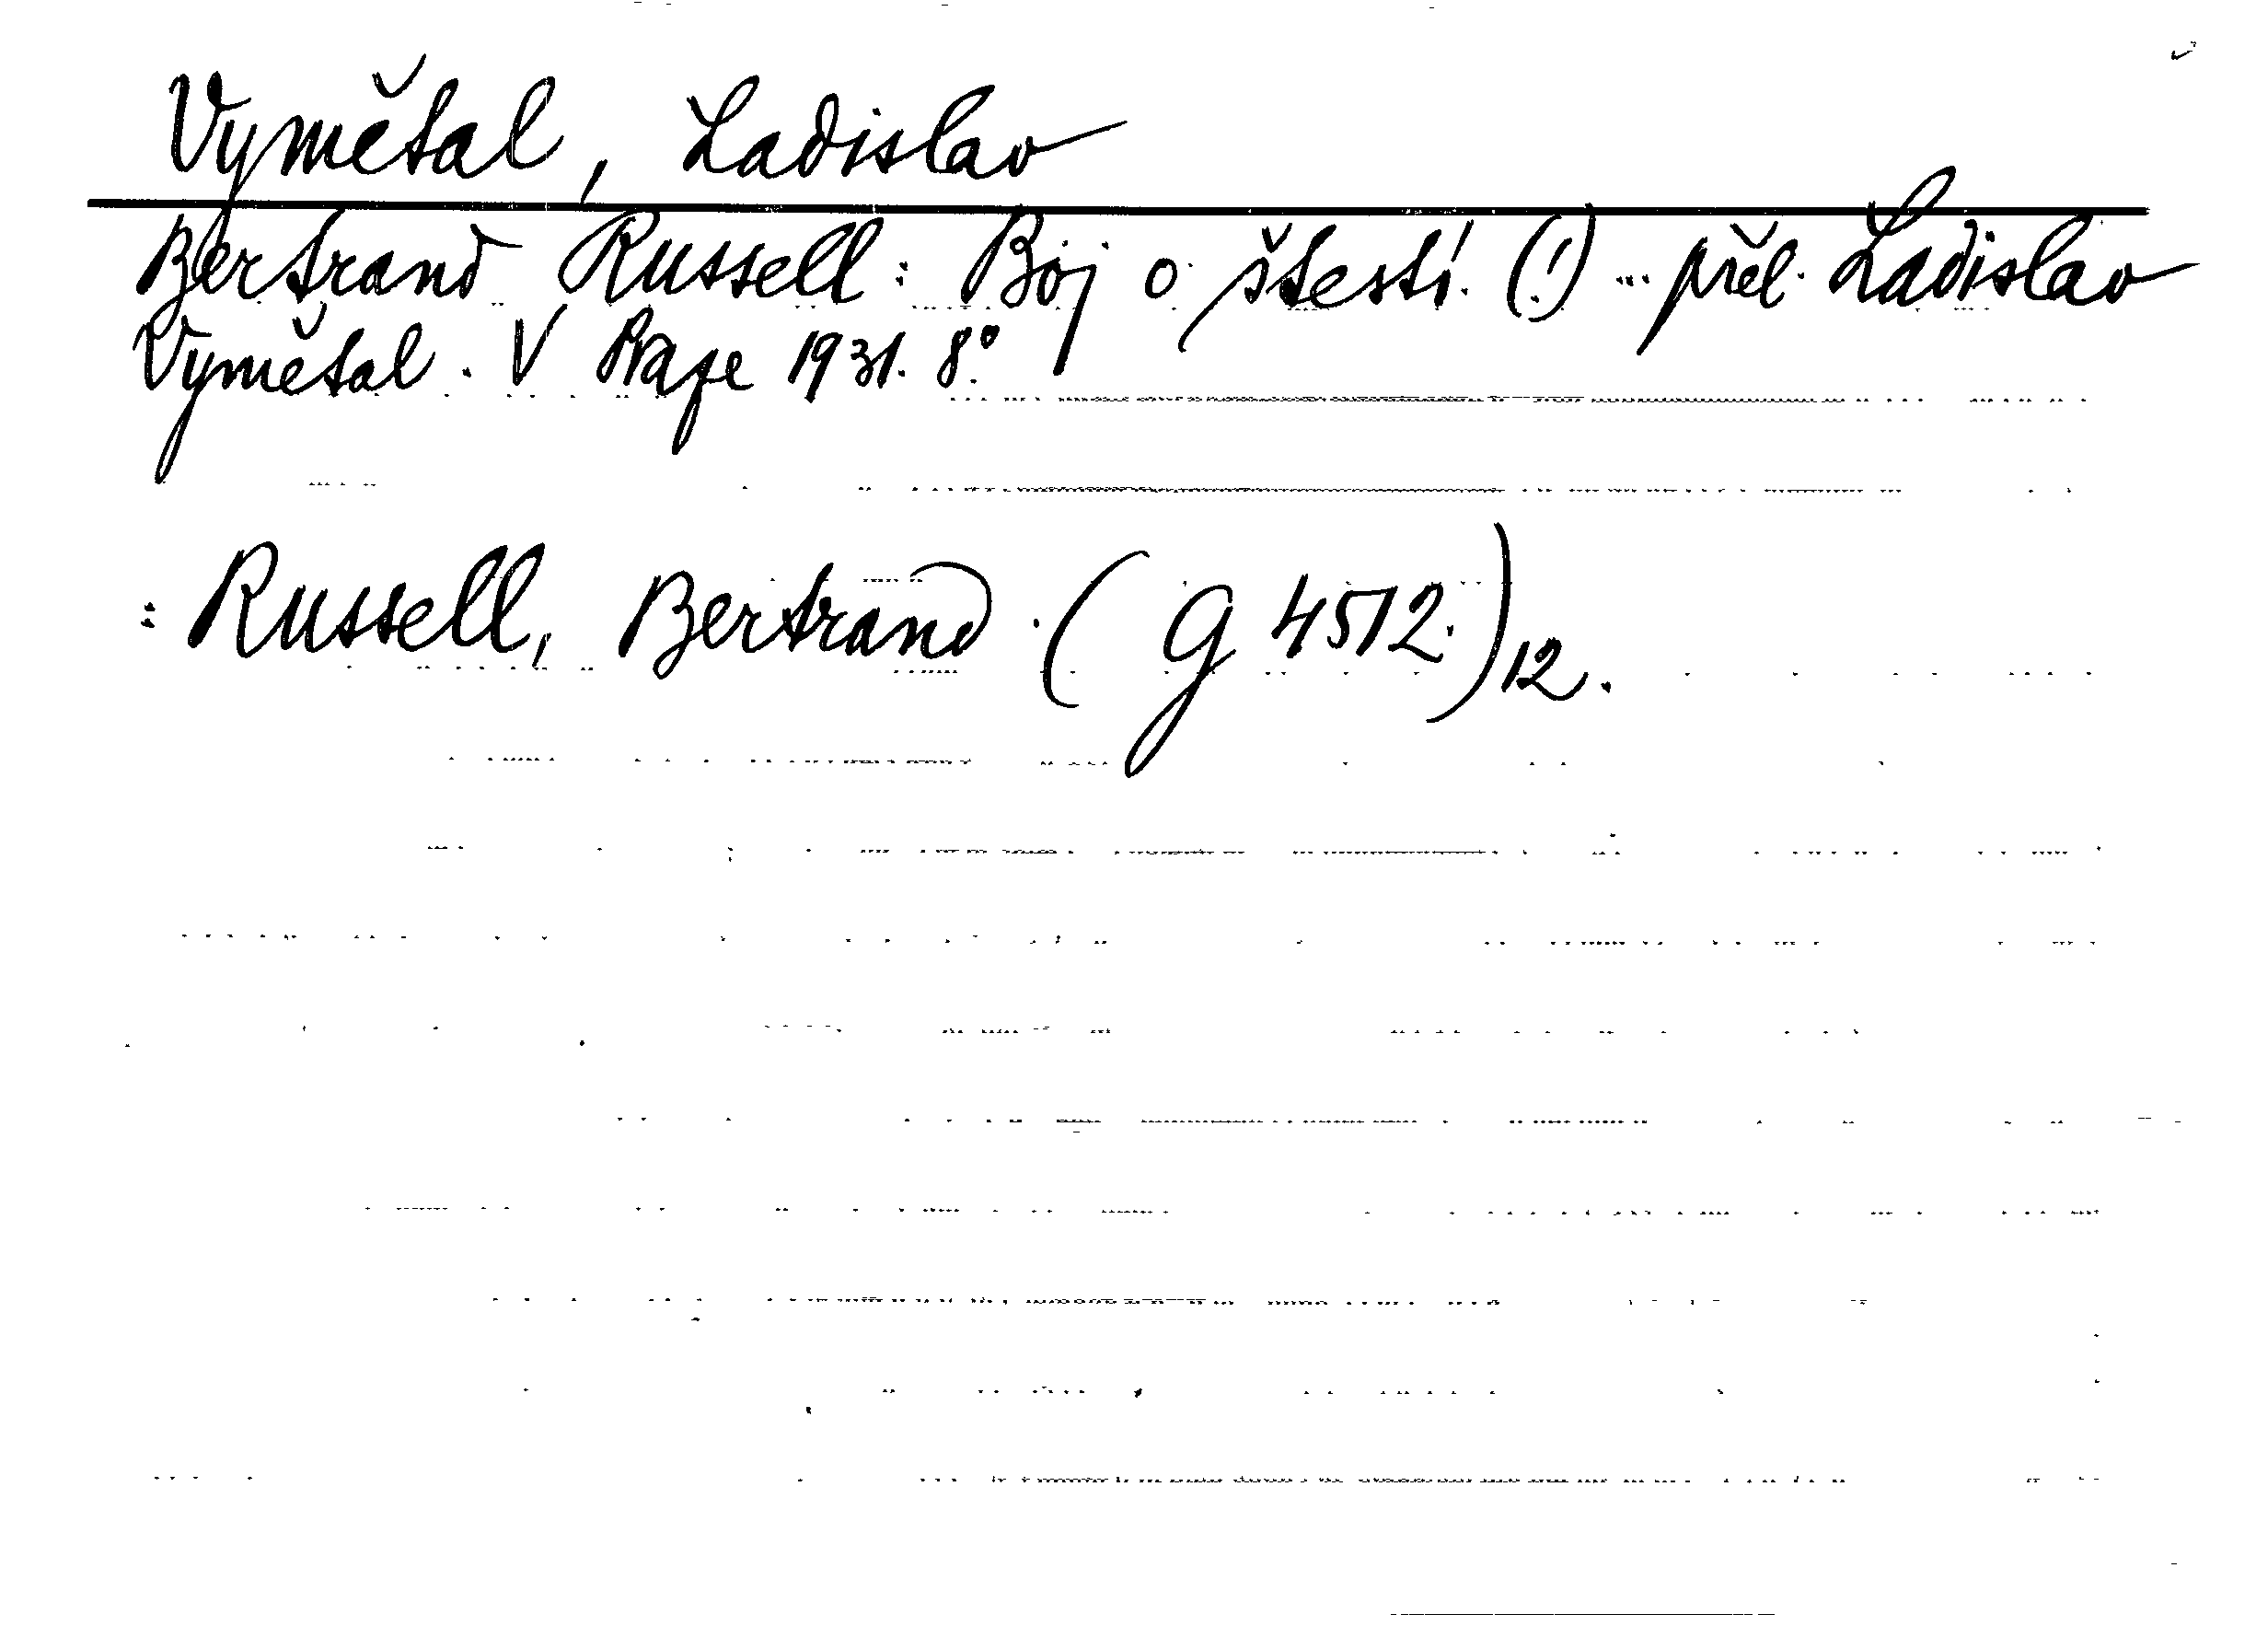 Vymětal, Ladislav
Bertrand Russell: Boj o štestí. (!) ... přel. Ladislav
Vymětal. V Praze 1931. 8°.
: Russell, Bertrand. (G 4512.)12.